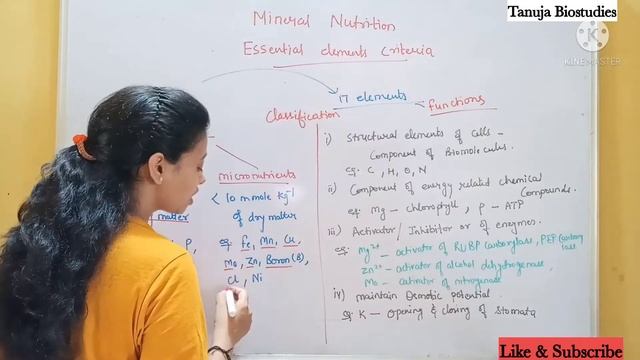 Tanuja Biostudies
KINEMASTER
Mineral Nutrition
Essential elements criteria
17 elements
functions
Classification
micronutrients
< 10 mmole kg⁻¹
of dry matter
eg. Fe, Mn, Cu,
Mo, Zn, Boron (B),
Cl, Ni
matter
P,
i) Structural elements of cells -
Component of Biomolecules.
eg. C, H, O, N
ii) Component of energy related chemical
Compounds.
eg. Mg - chlorophyll, P - ATP
iii) Activator / Inhibitor of of enzymes.
eg. Mg²⁺ - activator of RUBP carboxylase, PEP carboxylase
Zn²⁺ - activator of alcohol dehydrogenase
Mo - activator of nitrogenase
iv) maintain Osmotic potential.
eg. K - Opening & closing of Stomata
Like & Subscribe